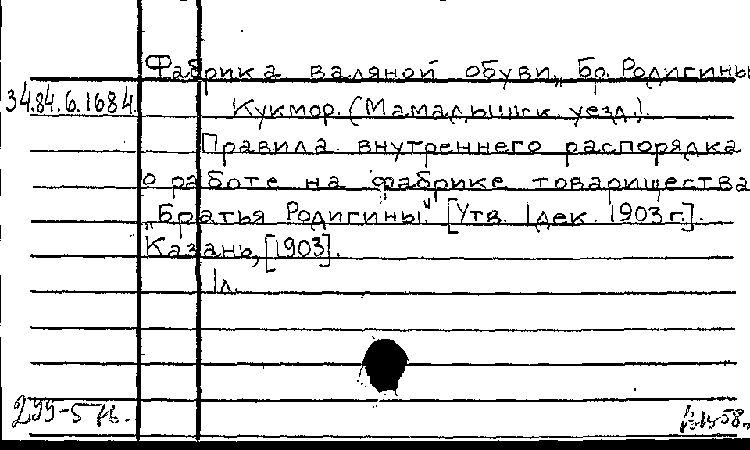 Фабрика валяной обуви „Бр. Родигины
34.84.6.1684. Кукмор. (Мамадышск. уезд.).
Правила внутреннего распорядка
о работе на фабрике товарищества
„Братья Родигины." [Утв. 1 дек. 1903 г.].
Казань, [1903].
1 л.
299-5